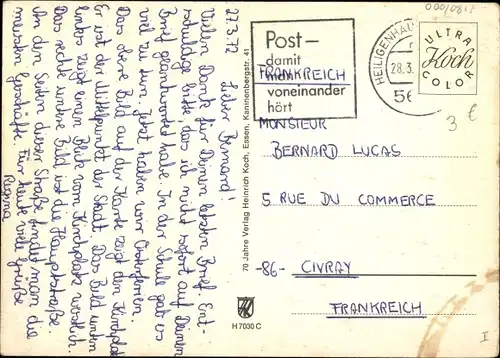 27.3.72
Lieber Bernard!
Vielen Dank für Deinen letzten Brief. Ent-
schuldige bitte, das ich nicht sofort auf Deinen
Brief geantwortet habe. In der Schule gab es
viel zu tun. Jetzt haben wir Osterferien.
Das obere Bild auf der Karte zeigt den Kirchplatz
Er ist der Mittelpunkt der Stadt. Das Bild unten
links zeigt einen Blick vom Kirchplatz westlich.
Das rechte untere Bild ist die Hauptstraße.
An den Seiten dieser Straße findet man die
meisten Geschäfte. Für heute viele Grüße
Regina
70 Jahre Verlag Heinrich Koch, Essen, Kaninenbergstr. 41
H 7030 C
Post–
damit
voneinander
hört
HEILIGENHAUS
28.3.
56
ULTRA
Koch
COLOR
3 €
FRANKREICH
MONSIEUR
BERNARD LUCAS
5 RUE DU COMMERCE
-86- CIVRAY
FRANKREICH
I